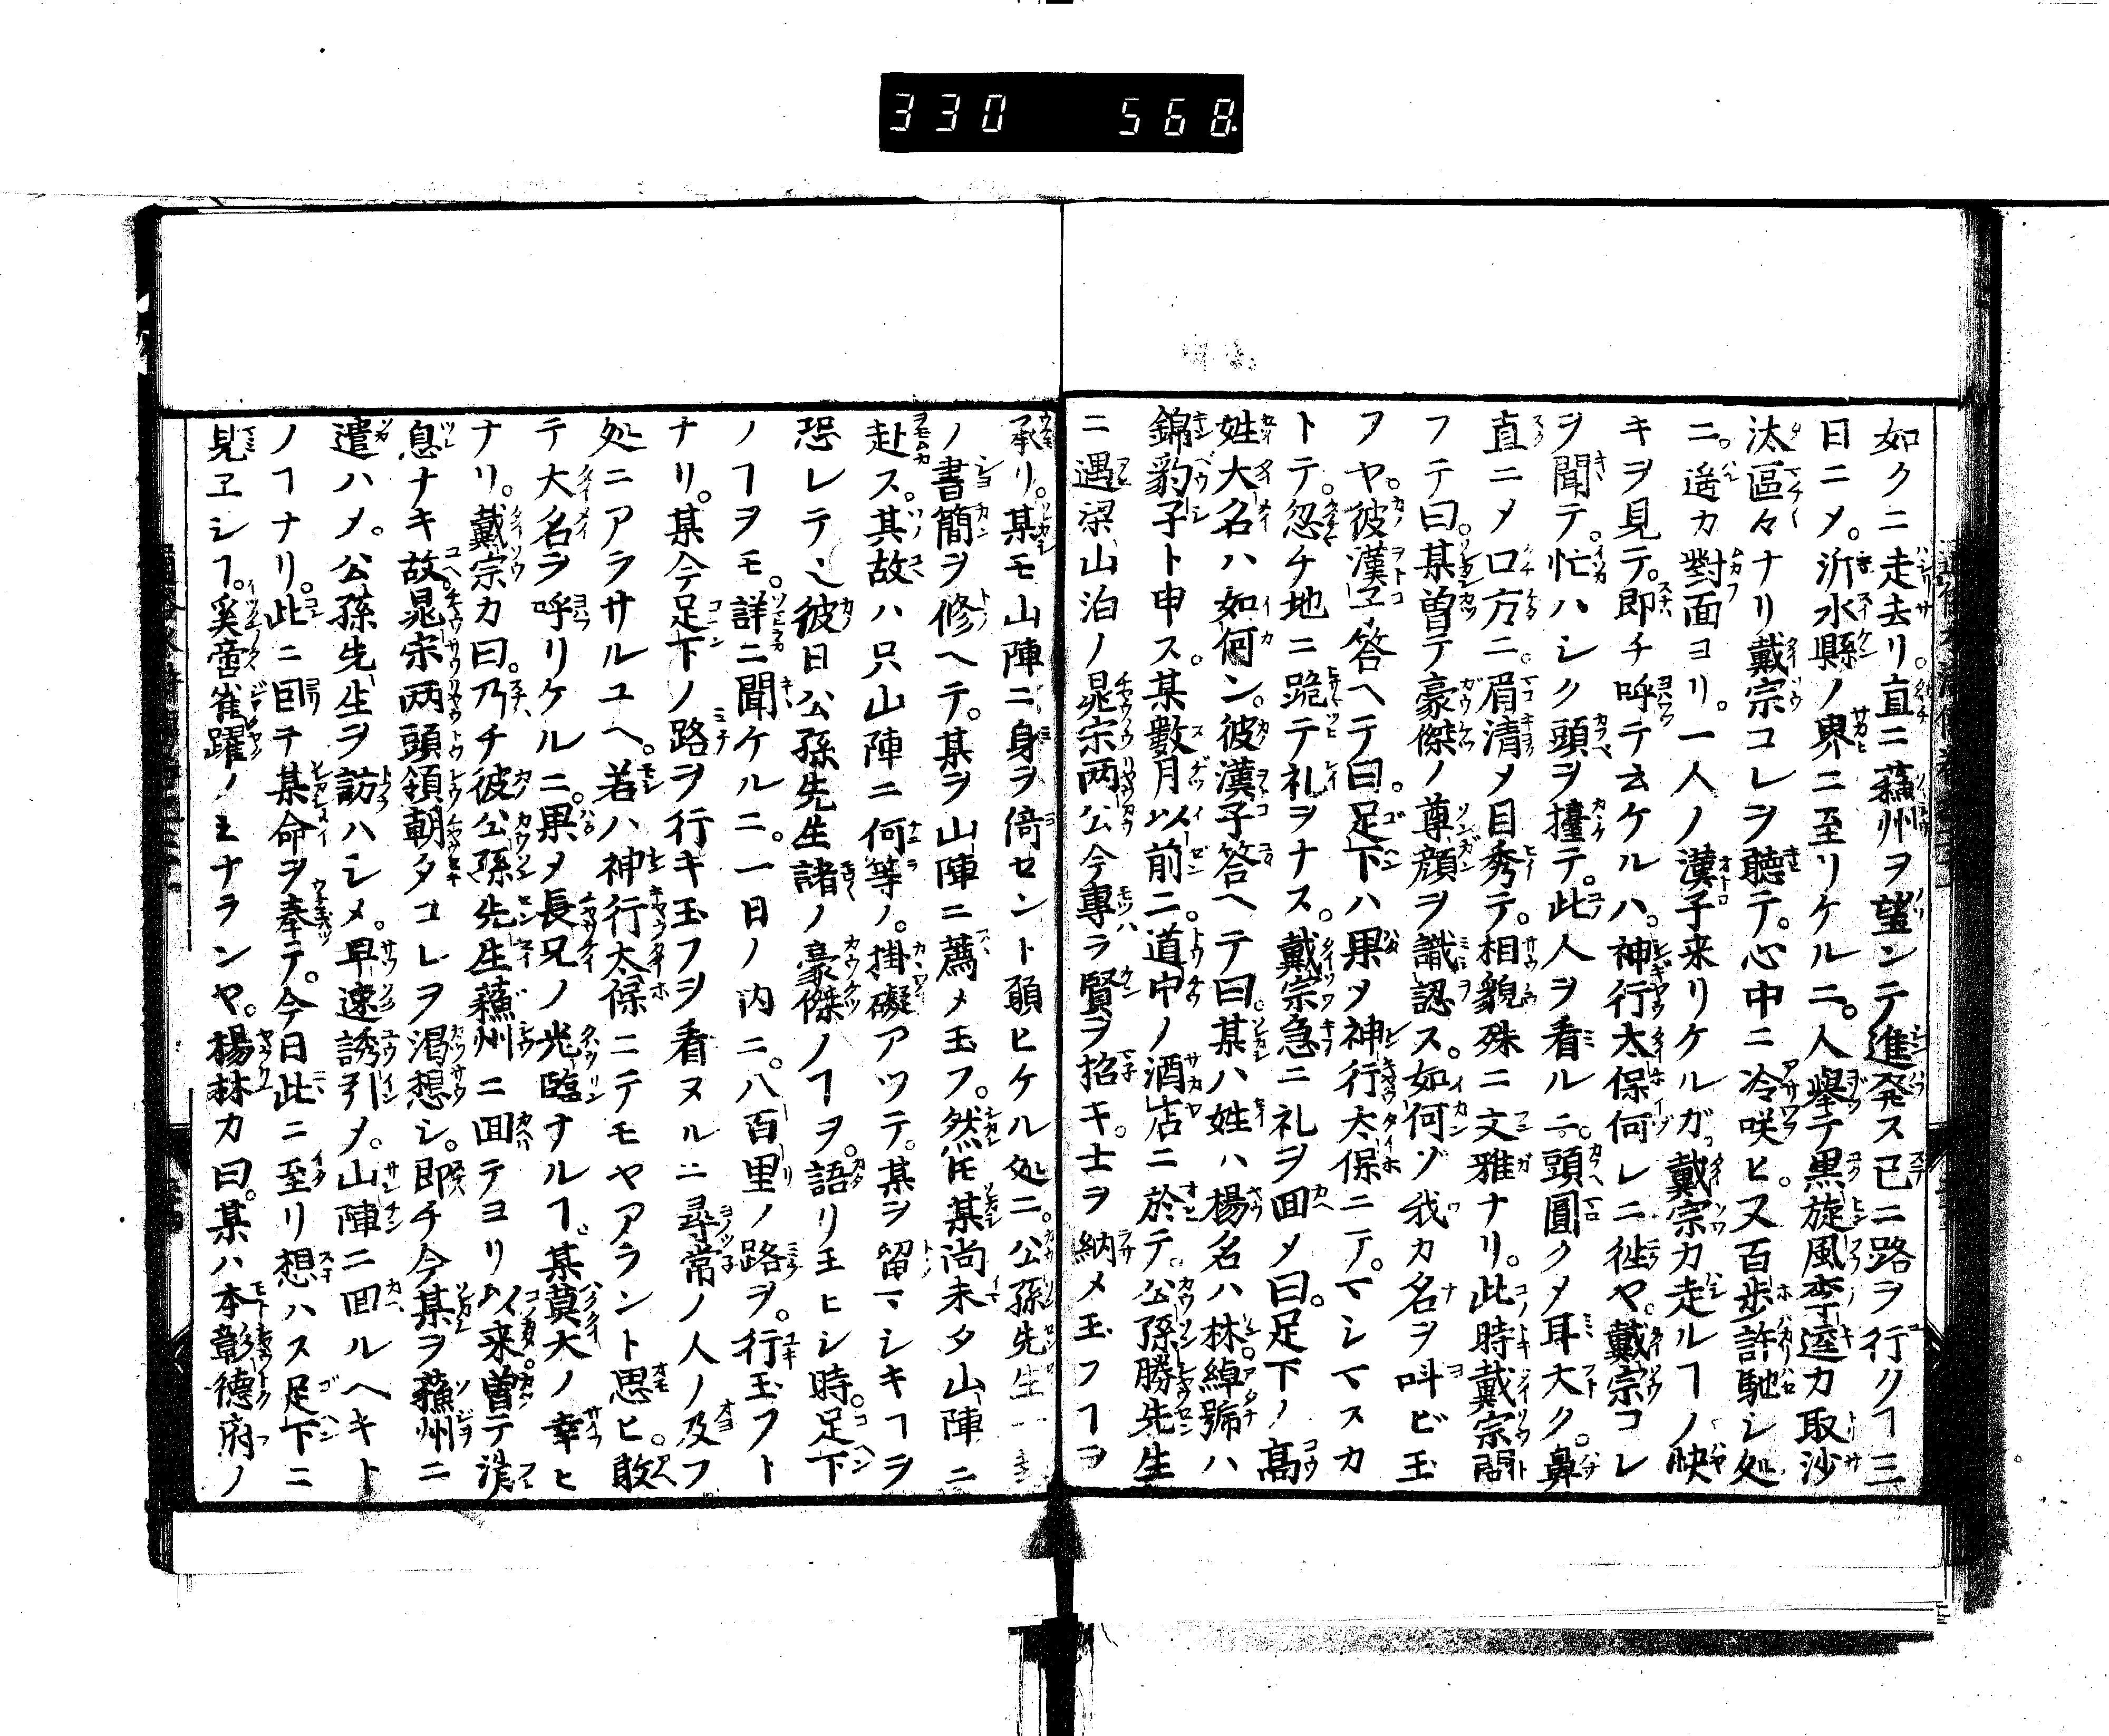 330 568.
如クニ走去リ。直ニ蘓州ヲ望ンテ進発ス已ニ路ヲ行クヿ三
日ニメ。沂水縣ノ界ニ至リケルニ。人擧テ黒旋風李逵カ取沙
汰區々ナリ戴宗コレヲ聴テ。心中ニ冷咲ヒ。又百歩許馳シ処
ニ。遙カ對面ヨリ。一人ノ漢子来リケルガ。戴宗カ走ルヿノ快
キヲ見テ。即チ呼テ云ケルハ。神行太保何レニ徃ヤ。戴宗コレ
ヲ聞テ。忙ハシク頭ヲ擡テ。此人ヲ看ルニ。頭圓クメ耳大ク。鼻
直ニメ口方ニ。眉清メ目秀テ。相貌殊ニ文雅ナリ。此時戴宗問
フテ曰。某曽テ豪傑ノ尊顔ヲ識認ス。如何ゾ我カ名ヲ呌ビ玉
フヤ。彼漢子答ヘテ曰。足下ハ果メ神行太保ニテ。マシマスカ
トテ。忽チ地ニ跪テ礼ヲナス。戴宗急ニ礼ヲ回メ曰。足下ノ高
姓大名ハ如何ン。彼漢子答ヘテ曰。某ハ姓ハ楊名ハ林。綽号ハ
錦豹子ト申ス。某數月以前ニ。道中ノ酒店ニ於テ。公孫勝先生
ニ遇梁山泊ノ晁宗両公今專ラ賢ヲ招キ。士ヲ納メ玉フヿヲ
承リ。某モ山陣ニ身ヲ倚セント願ヒケル処ニ。公孫先生一
ノ書簡ヲ修ヘテ。某ヲ山陣ニ薦メ玉フ。然𪜈某尚未タ山陣ニ
赴ス。其故ハ只山陣ニ何等ノ。掛礙アツテ。某ヲ留マシキヿヲ
恐レテ也彼日公孫先生諸ノ豪傑ノヿヲ。語リ玉ヒシ時。足下
ノヿヲモ。詳ニ聞ケルニ。一日ノ内ニ。八百里ノ路ヲ。行玉フト
ナリ。某今足下ノ路ヲ行キ玉フヲ看ヌルニ尋常ノ人ノ及フ
処ニアラサルユヘ。若ハ神行太保ニテモヤアラント思ヒ。敢
テ大名ヲ呼リケルニ。果メ長兄ノ光臨ナルヿ。某莫大ノ幸ヒ
ナリ。戴宗カ曰。乃チ彼公孫先生蘓州ニ回テヨリ以来。曽テ消
息ナキ故晁宗両頭領朝タコレヲ渇想シ。即チ今某ヲ蘓州ニ
遣ハメ。公孫先生ヲ訪ハシメ。早速誘引メ。山陣ニ回ルヘキト
ノヿナリ。此ニ因テ某命ヲ奉テ。今日此ニ至リ想ハス足下ニ
見ヱシヿ。奚啻雀躍ノミナランヤ。楊林カ曰。某ハ本彰德府ノ